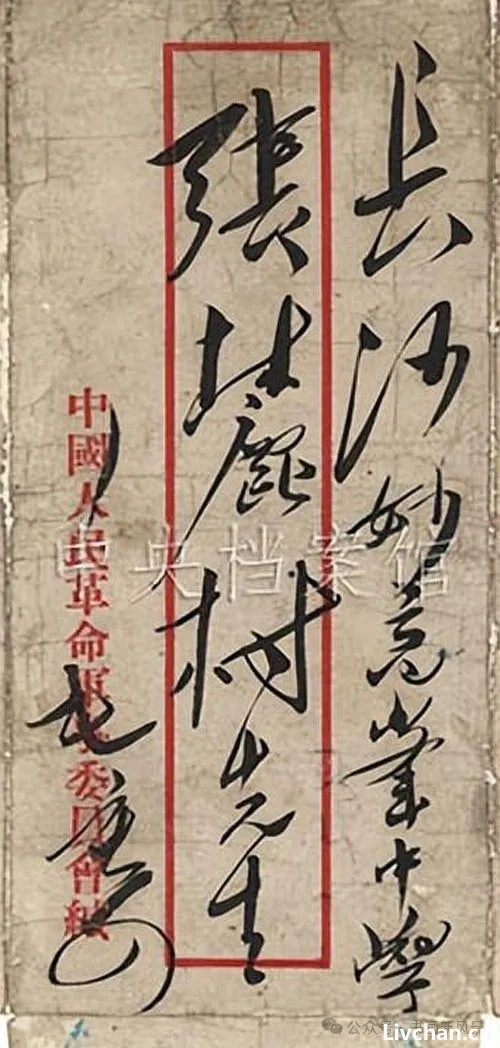 長沙妙高峯中學
張麓村先生
中國人民革命軍事委員會緘
中央档案馆
公众号
Livchan.c